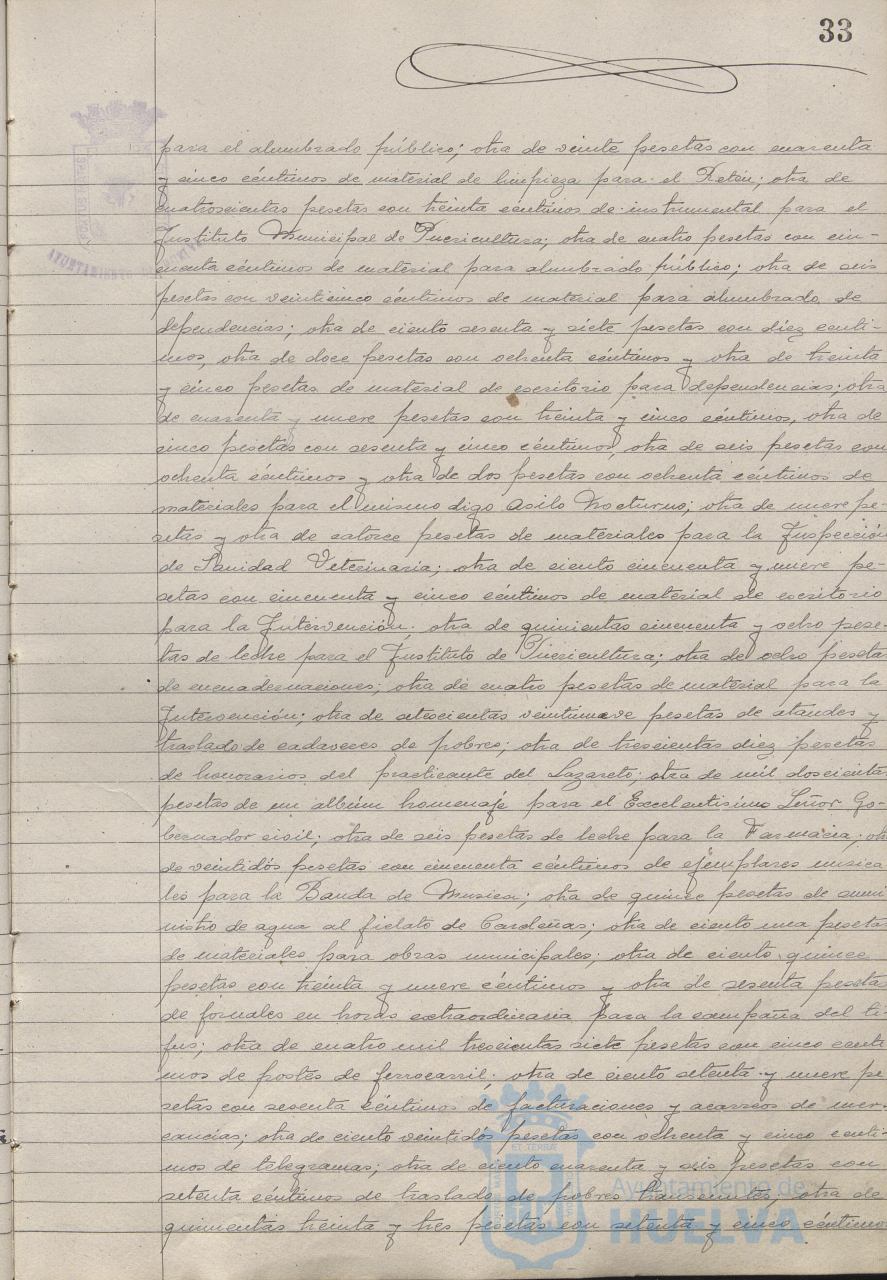 33
para el alumbrado público; otra de veinte pesetas con cuarenta
y cinco céntimos de material de limpieza para el Retén; otra de
cuatroscientas pesetas con treinta céntimos de instrumental para el
Instituto Municipal de Puericultura; otra de cuatro pesetas con cin-
cuenta céntimos de material para alumbrado público; otra de seis
pesetas con veinticinco céntimos de material para alumbrado de
dependencias; otra de ciento sesenta y siete pesetas con diez cénti-
mos, otra de doce pesetas con ochenta céntimos y otra de treinta
y cinco pesetas de material de escritorio para dependencias; otra
de cuarenta y nueve pesetas con treinta y cinco céntimos, otra de
cinco pesetas con sesenta y cinco céntimos, otra de seis pesetas con
ochenta céntimos y otra de dos pesetas con ochenta céntimos de
materiales para el mismo digo Asilo Nocturno; otra de nueve pe-
setas y otra de catorce pesetas de materiales para la Inspección
de Sanidad Veterinaria; otra de ciento cincuenta y nueve pe-
setas con cincuenta y cinco céntimos de material de escritorio
para la Intervención; otra de quinientas cincuenta y ocho pese-
tas de leche para el Instituto de Puericultura; otra de ocho pesetas
de encuadernaciones; otra de cuatro pesetas de material para la
Intervención; otra de setescientas veintinueve pesetas de ataudes y
traslado de cadaveres de pobres; otra de trescientas diez pesetas
de honorarios del practicante del Lazareto; otra de mil doscientas
pesetas de un album homenaje para el Excelentisimo Señor Go-
bernador civil; otra de seis pesetas de leche para la Farmacia; otra
de veintidós pesetas con cincuenta céntimos de ejemplares musica
les para la Banda de Musica; otra de quince pesetas de sumi
nistro de agua al fielato de Cardeñas; otra de ciento una pesetas
de materiales para obras municipales; otra de ciento quince
pesetas con treinta y nueve céntimos y otra de sesenta pesetas
de jornales en horas extraordinaria para la campaña del ti-
fus; otra de cuatro mil trescientas siete pesetas con cinco cénti
mos de postes de ferrocarril; otra de ciento setenta y nueve pe
setas con sesenta céntimos de facturaciones y acarreos de mer-
cancias; otra de ciento veintidós pesetas con ochenta y cinco cénti-
mos de telegramas; otra de ciento cuarenta y seis pesetas con
setenta céntimos de traslado de pobres transeuntes, otra de
quinientas treinta y tres pesetas con setenta y cinco céntimos
Ayuntamiento de
HUELVA